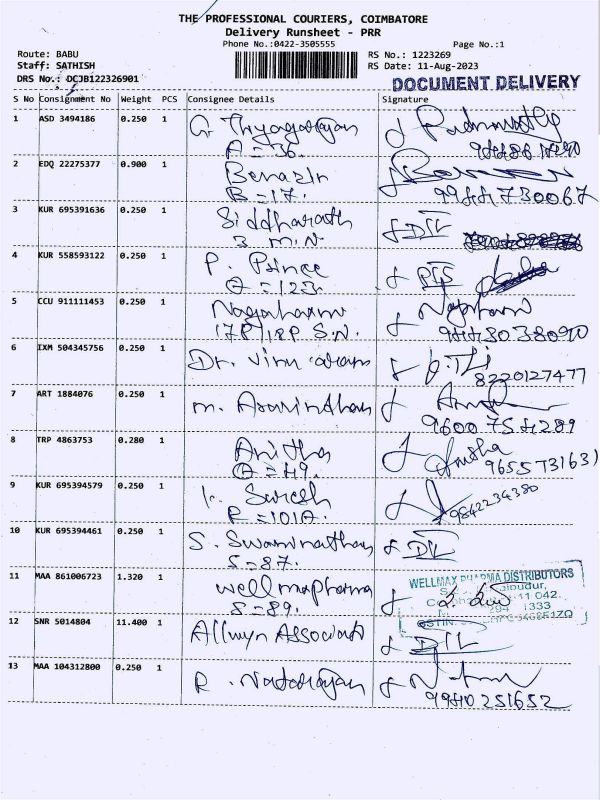 THE PROFESSIONAL COURIERS, COIMBATORE
Delivery Runsheet - PRR
Phone No.:0422-3505555 Page No.:1
Route: BABU RS No.: 1223269
Staff: SATHISH RS Date: 11-Aug-2023
DRS No.: DCJB122326901
DOCUMENT DELIVERY
S No Consignment No Weight PCS Consignee Details Signature
1 ASD 3494186 0.250 1 G. Thyagarajan
A = 36.
2 EDQ 22275377 0.900 1 Benazir
B = 17. 9944730067
3 KUR 695391636 0.250 1 Siddharath
3 m.N
4 KUR 558593122 0.250 1 P. Prince
A = 123.
5 CCU 911111453 0.250 1
9443038090
6 IXM 504345756 0.250 1 Dr.
8220127477
7 ART 1884076 0.250 1 m. Aravindhan
9600754289
8 TRP 4863753 0.280 1 Anitha
A = 49. 9655731631
9 KUR 695394579 0.250 1 K. Suresh
R = 101A. 9842234380
10 KUR 695394461 0.250 1 S. Swaminathan
S = 87.
11 MAA 861006723 1.320 1 wellmapharma
S = 89.
WELLMAX PHARMA DISTRIBUTORS
12 SNR 5014804 11.400 1 Allwyn Associats
13 MAA 104312800 0.250 1 R. Natarajan
9940251652